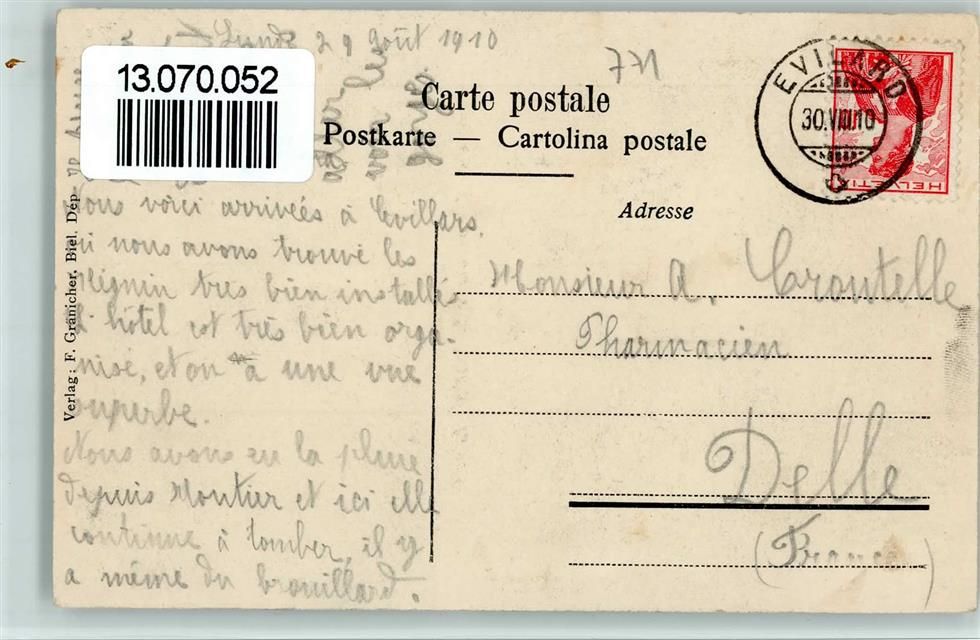 Lundi 29 Août 1910
13.070.052
771
Carte postale
Postkarte — Cartolina postale
Adresse
EVILARD
30.VIII.10
HELVETIA
Verlag: F. Gränicher, Biel. Dép.
voir les
Nous voici arrivées à Evillars,
où nous avons trouvé les
très bien installés
L'hôtel est très bien orga-
nisé, et on a une vue
superbe.
Nous avons eu la pluie
depuis Moutier et ici elle
continue à tomber, il y
a même du brouillard.
Monsieur A. Croutelle
Pharmacien
Delle
(France)